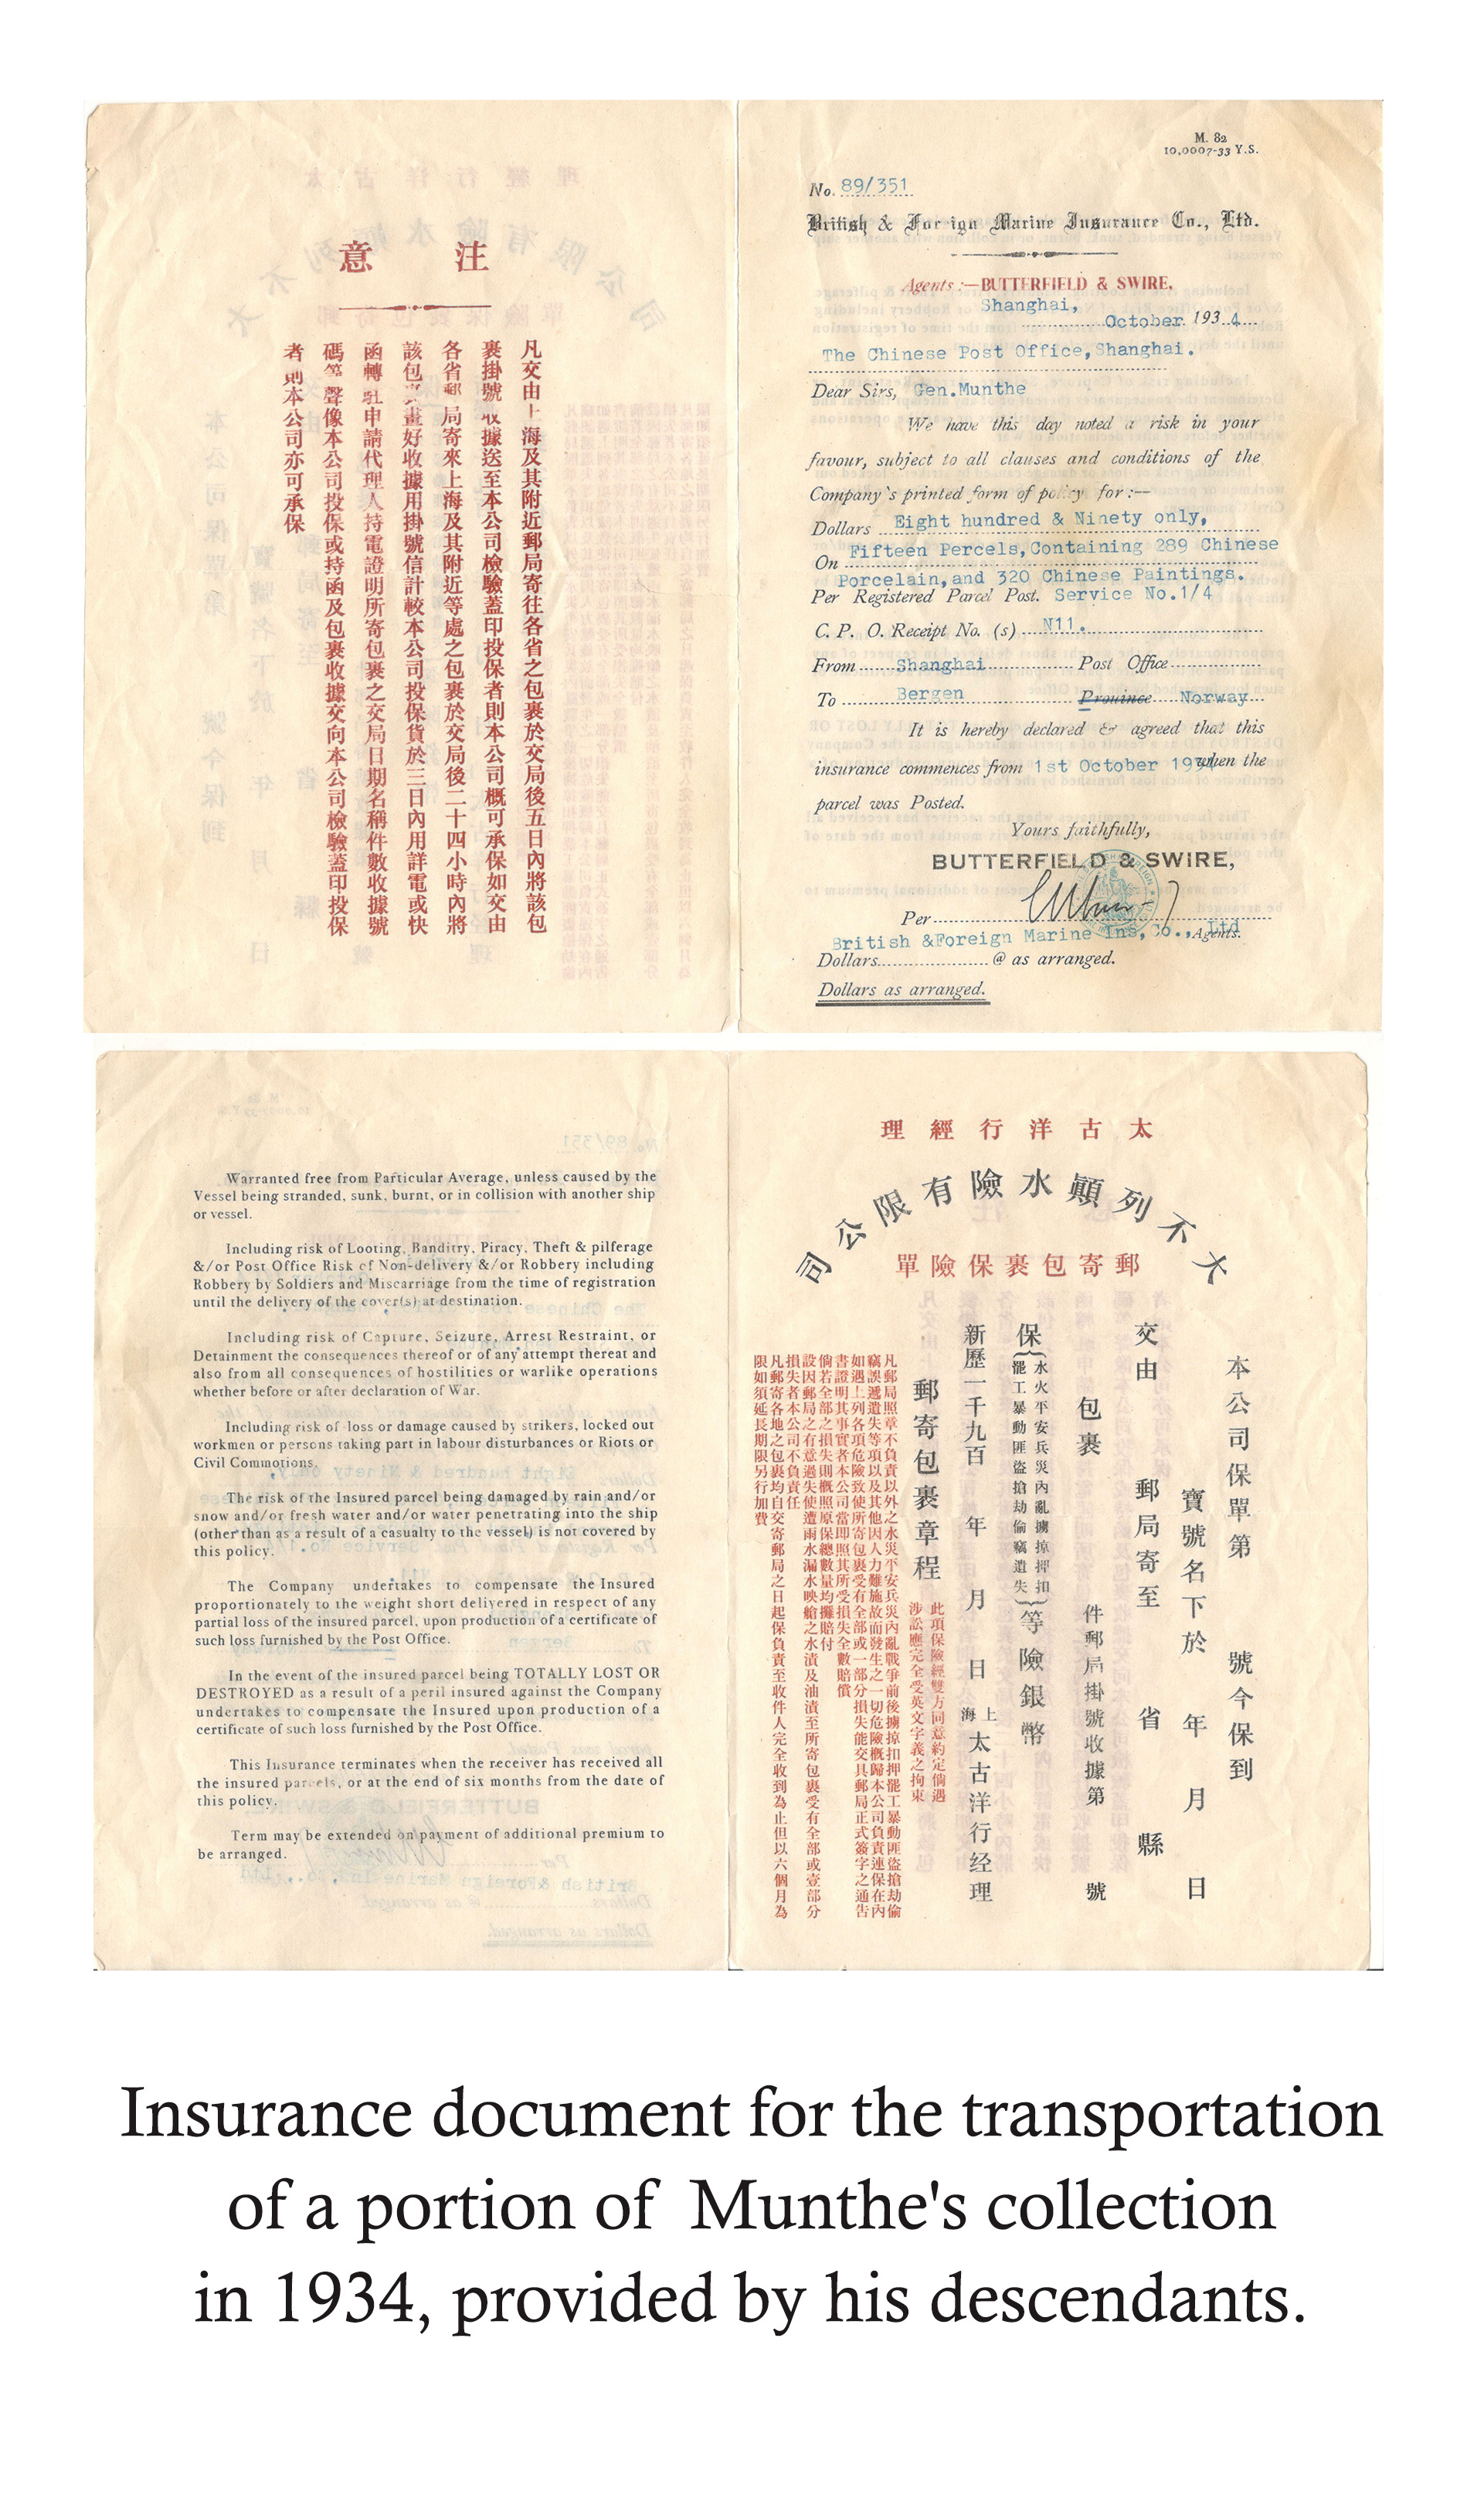 注意
凡交由上海及其附近郵局寄往各省之包裹於交局後五日內將該包
裹掛號收據送至本公司檢驗蓋印投保者則本公司概可承保如交由
各省郵局寄來上海及其附近等處之包裹於交局後二十四小時內將
該包 畫好收據用掛號信計較本公司投保貨於三日內用詳電或快
函轉 申請代理人持電證明所寄包裹之交局日期名稱件數收據號
碼等 聲像本公司投保或持函及包裹收據交向本公司檢驗蓋印投保
者則本公司亦可承保
M. 82
10,0007-33 Y.S.
No. 89/351
British & Foreign Marine Insurance Co., Ltd.
Agents:—BUTTERFIELD & SWIRE,
Shanghai,
October 1934
The Chinese Post Office,Shanghai.
Dear Sirs, Gen.Munthe
We have this day noted a risk in your
favour, subject to all clauses and conditions of the
Company's printed form of policy for:—
Dollars Eight hundred & Ninety only,
On Fifteen Percels,Containing 289 Chinese
Porcelain,and 320 Chinese Paintings.
Per Registered Parcel Post. Service No.1/4
C. P. O. Receipt No. (s) N11.
From Shanghai Post Office
To Bergen Province Norway
It is hereby declared & agreed that this
insurance commences from 1st October 1934 when the
parcel was Posted.
Yours faithfully,
BUTTERFIELD & SWIRE,
Per
British &Foreign Marine Ins,Co.,Ltd Agents.
Dollars @ as arranged.
Dollars as arranged.
Warranted free from Particular Average, unless caused by the
Vessel being stranded, sunk, burnt, or in collision with another ship
or vessel.
Including risk of Looting, Banditry, Piracy, Theft & pilferage
&/or Post Office Risk of Non-delivery &/or Robbery including
Robbery by Soldiers and Miscarriage from the time of registration
until the delivery of the cover(s) at destination.
Including risk of Capture, Seizure, Arrest Restraint, or
Detainment the consequences thereof or of any attempt thereat and
also from all consequences of hostilities or warlike operations
whether before or after declaration of War.
Including risk of loss or damage caused by strikers, locked out
workmen or persons taking part in labour disturbances or Riots or
Civil Commotions.
The risk of the Insured parcel being damaged by rain and/or
snow and/or fresh water and/or water penetrating into the ship
(other than as a result of a casualty to the vessel) is not covered by
this policy.
The Company undertakes to compensate the Insured
proportionately to the weight short delivered in respect of any
partial loss of the insured parcel, upon production of a certificate of
such loss furnished by the Post Office.
In the event of the insured parcel being TOTALLY LOST OR
DESTROYED as a result of a peril insured against the Company
undertakes to compensate the Insured upon production of a
certificate of such loss furnished by the Post Office.
This Insurance terminates when the receiver has received all
the insured parcels, or at the end of six months from the date of
this policy.
Term may be extended on payment of additional premium to
be arranged.
太古洋行經理
大不列顛水險有限公司
郵寄包裹保險單
本公司保單第 號今保到
寶號名下於 年 月 日
交由 郵局寄至 省 縣
包裹 件郵局掛號收據第 號
保(水火平安兵災內亂擄掠押扣
罷工暴動匪盜搶劫偷竊遺失)等險銀幣
新歷一千九百 年 月 日上海太古洋行经理
郵寄包裹章程 此項保險經雙方同意約定倘遇
涉訟應完全受英文字義之拘束
凡郵局照章不負責以外之水災平安兵災內亂戰爭前後擄掠扣押罷工暴動匪盜搶劫偷
竊誤遞遺失等項以及其他因人力難施故而發生之一切危險概歸本公司負責連保在內
如遇上列各項危險致使所寄包裹受有全部或一部分損失能交具郵局正式簽字之通告
書證明其事實者本公司當即照其所受損失全數賠償
倘若全部之損失則概照原保總數量均攤賠付
設因郵局之有意過失使遭雨水漏水映艙之水漬及油漬至所寄包裹受有全部或壹部分
損失者本公司不負責任
凡郵寄各地之包裹均自交寄郵局之日起保負責至收件人完全收到為止但以六個月為
限如須延長期限另行加費
Insurance document for the transportation
of a portion of Munthe's collection
in 1934, provided by his descendants.